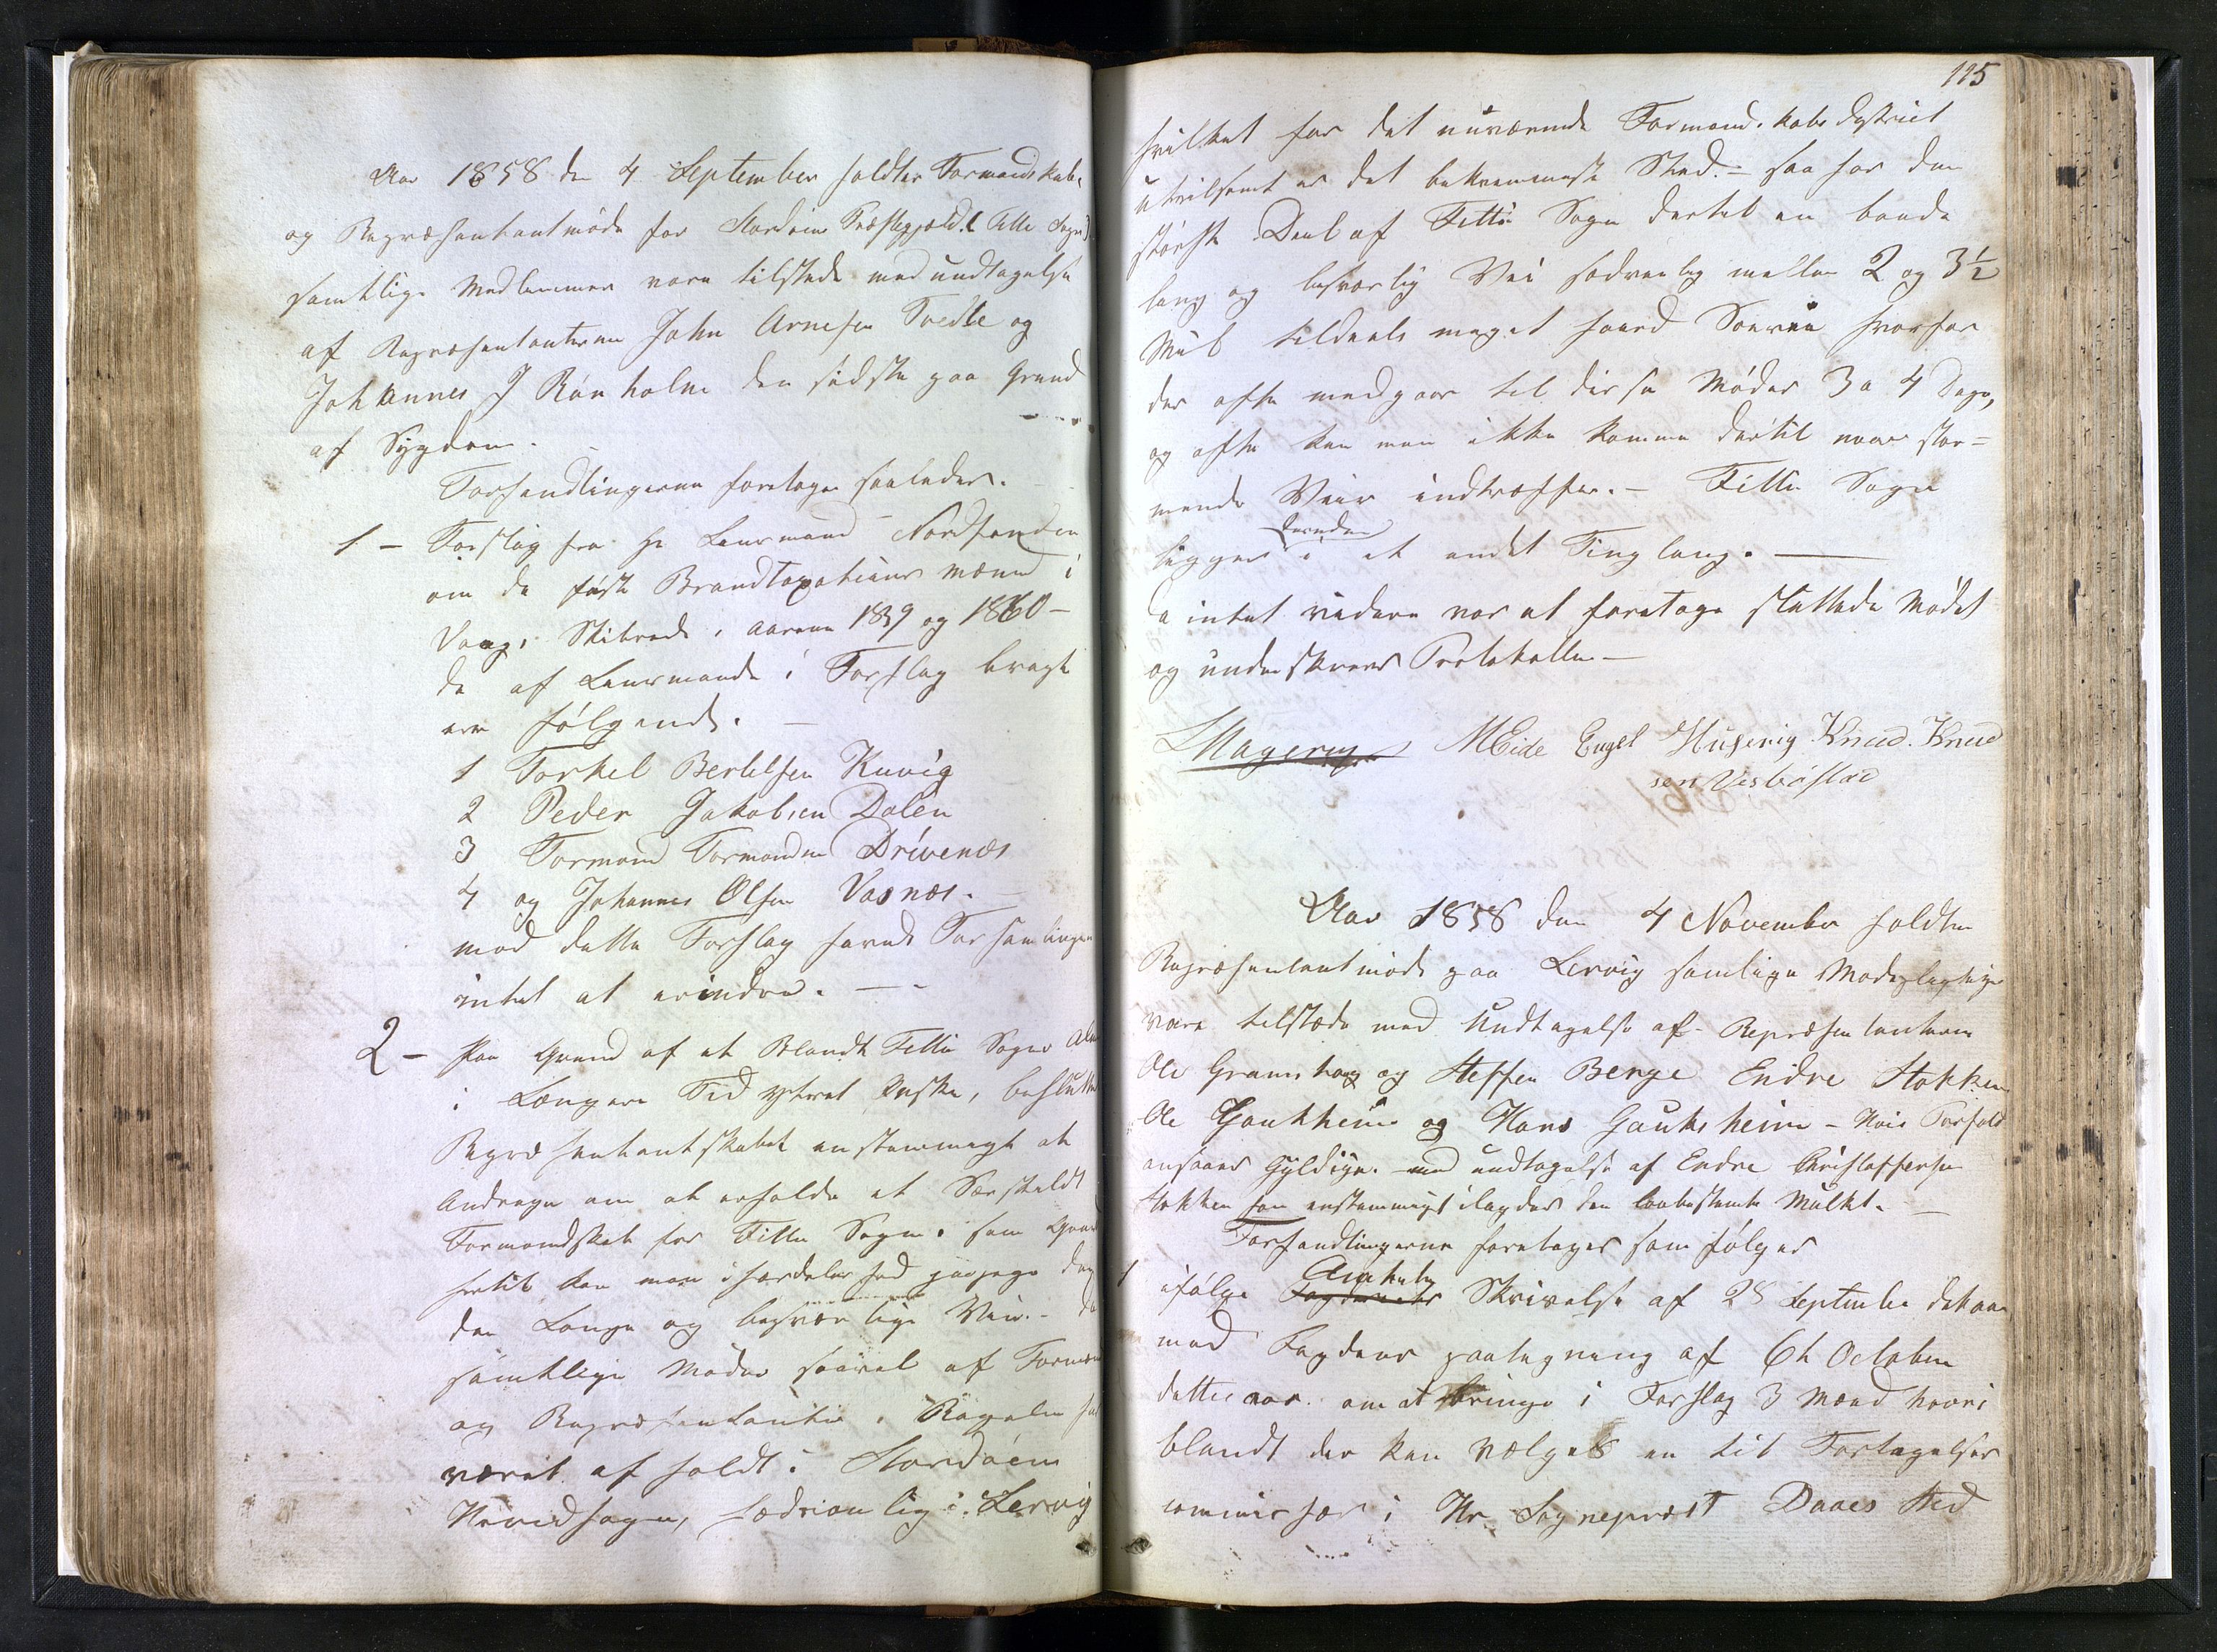 Aar 1858 den 4 September holdtes Formandskabs
og Repræsentantmøde for Stordøens Præstegjeld. (Fitie Sogn)
samtlige Medlemmer vare tilstede med undtagelse
af Repræsentanterne John Arnesen Tvedte og
Johannes J Rönholm den sidste paa Grund
af Sygdom.
Forhandlingerne foretoges saaledes.
1 - Forslag fra Hr Lensmand Nordhanden
om de faste Brandtaxations Mænd i
Vaags Skibrede, aarene 1859 og 1860 -
de af Lensmanden i Forslag bragte
ere følgende. -
1 Torkel Bertelsen Kuvig
2 Peder Jakobsen Dalen
3 Tormond Tormondsen Drivenæs
4 og Johannes Olsen Vasnæs. -
mod dette Forslag havde Forsamlingen
intet at erindre. - -
2 - Paa Grund af et Blandt Fittie Sogns Alm
i Længere Tid yttret Ønske, besluttede
Repræsentantskabet enstemmigt at
Andrage om at erholde et Særskildt
Formandskab for Fittie Sogn. som Grund
hertil kan man i særdeleshed paapege den
den Lange og besværlige Vei. - da
samtlige Møder saavel af Formænd
og Repræsentanter i Regelen har
været afholdt i Stordøens
Hovedsogn, sædvanlig i Lervig
115
hvilket for det nuværende Formandskabs Dystrict
utvilsomt er det bekvemmeste Sted. - saa har den
største Deel af Fittie Sogn dertil en baade
lang og besværlig Vei sædvanlig mellem 2 og 3½
Miil tildeels meget haard Søevei hvorfor
der ofte medgaar til disse Møder 3 a 4 Dage,
og ofte kan man ikke komme dertil naar stor=
mende Veir indtræffer. - Fittie Sogn
desuden
ligger i et andet Tinglaug. -
Da intet videre var at foretage sluttede Mødet
og underskrevs Protokollen -
LMagerøy MEide Engel Husevig Knud. Knud
sen Vestbøstad
Aar 1858 den 4 November holdtes
Repræsentantmøde paa Lervig samtlige Mødepligtige
vare tilstæde med Undtagelse af Repræsentanterne
Ole Gramshaug og Steffen Berge Endre Stokken
Ole Gaukheim og Hans Gauksheim - Hvis Forfald
ansaaes Gyldige. - med undtagelse af Endre Christoffersen
Stokken som enstemmigt ilagdes den lovbestemte Mulkt. -
Forhandlingerne foretoges som følger
Amtets
1 ifølge Fogderiets Skrivelse af 28 Septembr dette aar
med Fogdens paategning af 6te October
dettes aar. om at bringe i Forslag 3 Mænd hvori
blandt der kan vælges en til Forligelses
commissær i Hr. Sognepræst Daaes Sted